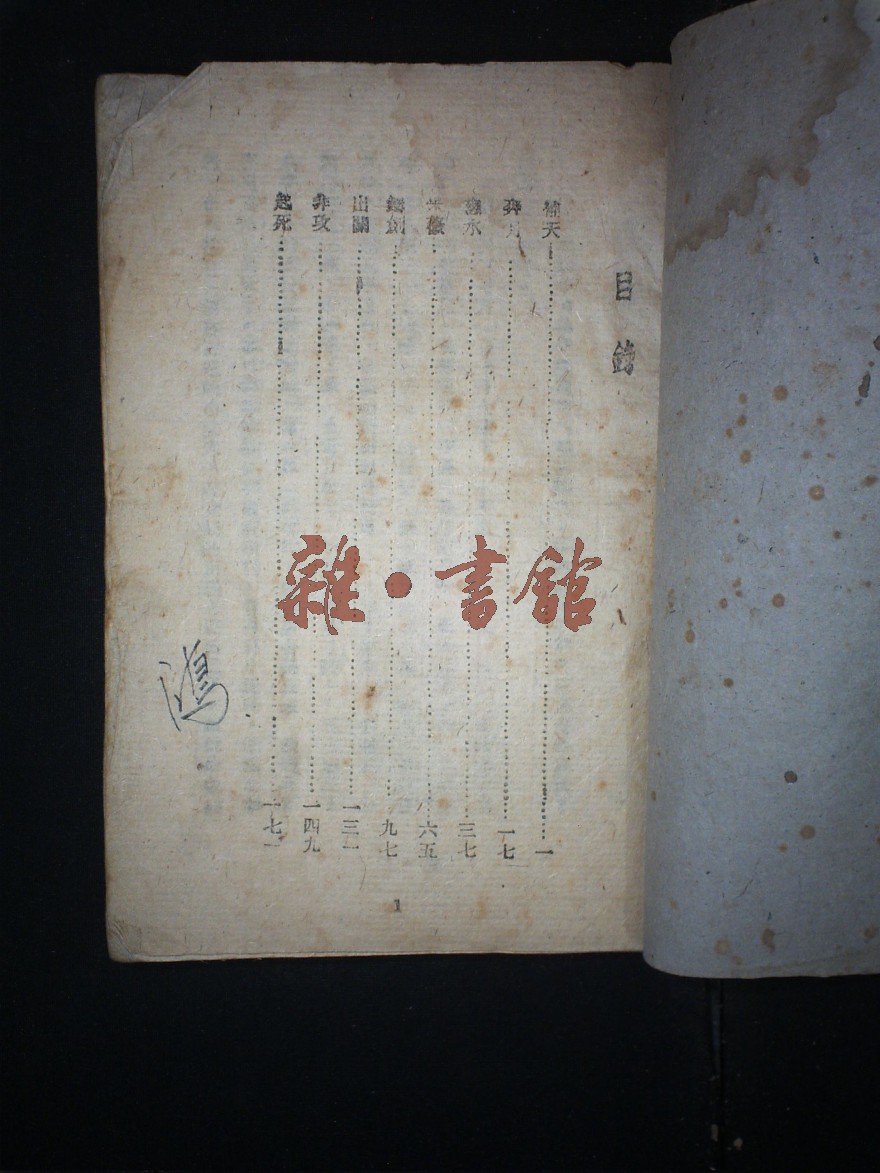 目錄
補天 一
奔月 一七
理水 三七
采薇 六五
鑄劍 九七
出關 一三一
非攻 一四九
起死 一七一
1
鴻
雜·書館